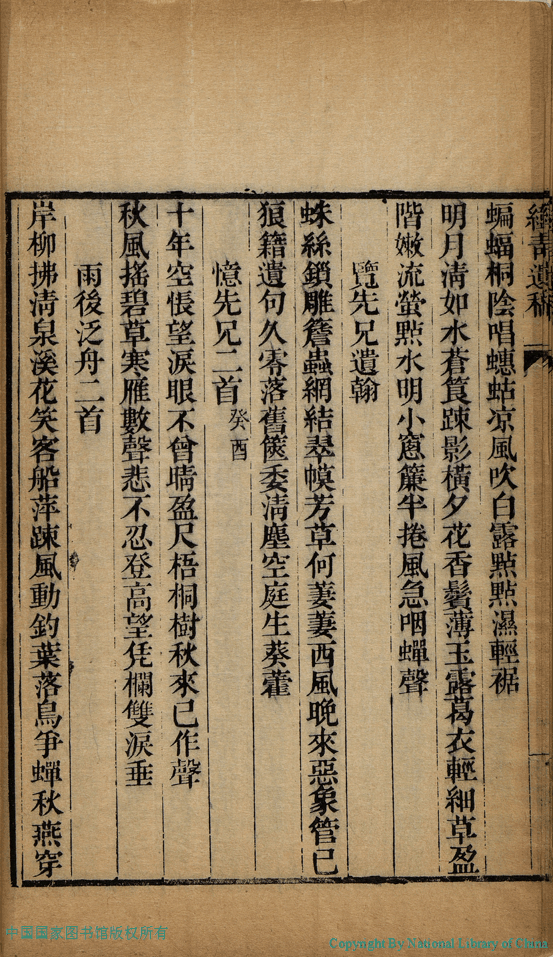 遺稿
蝙蝠桐陰唱蟪蛄凉風吹白露點點濕輕裾
明月淸如水蒼筤踈影橫夕花香鬢薄玉露葛衣輕細草盈
階嫩流螢點水明小窻簾半捲風急咽蟬聲
覽先兄遺翰
蛛絲鎖雕簷蟲網結翠幙芳草何萋萋西風晚來惡象管已
狼籍遺句久零落舊篋委淸塵空庭生葵藿
憶先兄二首 癸酉
十年空悵望淚眼不曾晴盈尺梧桐樹秋來已作聲
秋風搖碧草寒雁數聲悲不忍登高望凭欄雙淚垂
雨後泛舟二首
岸柳拂淸泉溪花笑客船萍踈風動釣葉落鳥爭蟬秋燕穿
中国国家图书馆版权所有
Copyright By National Library of China